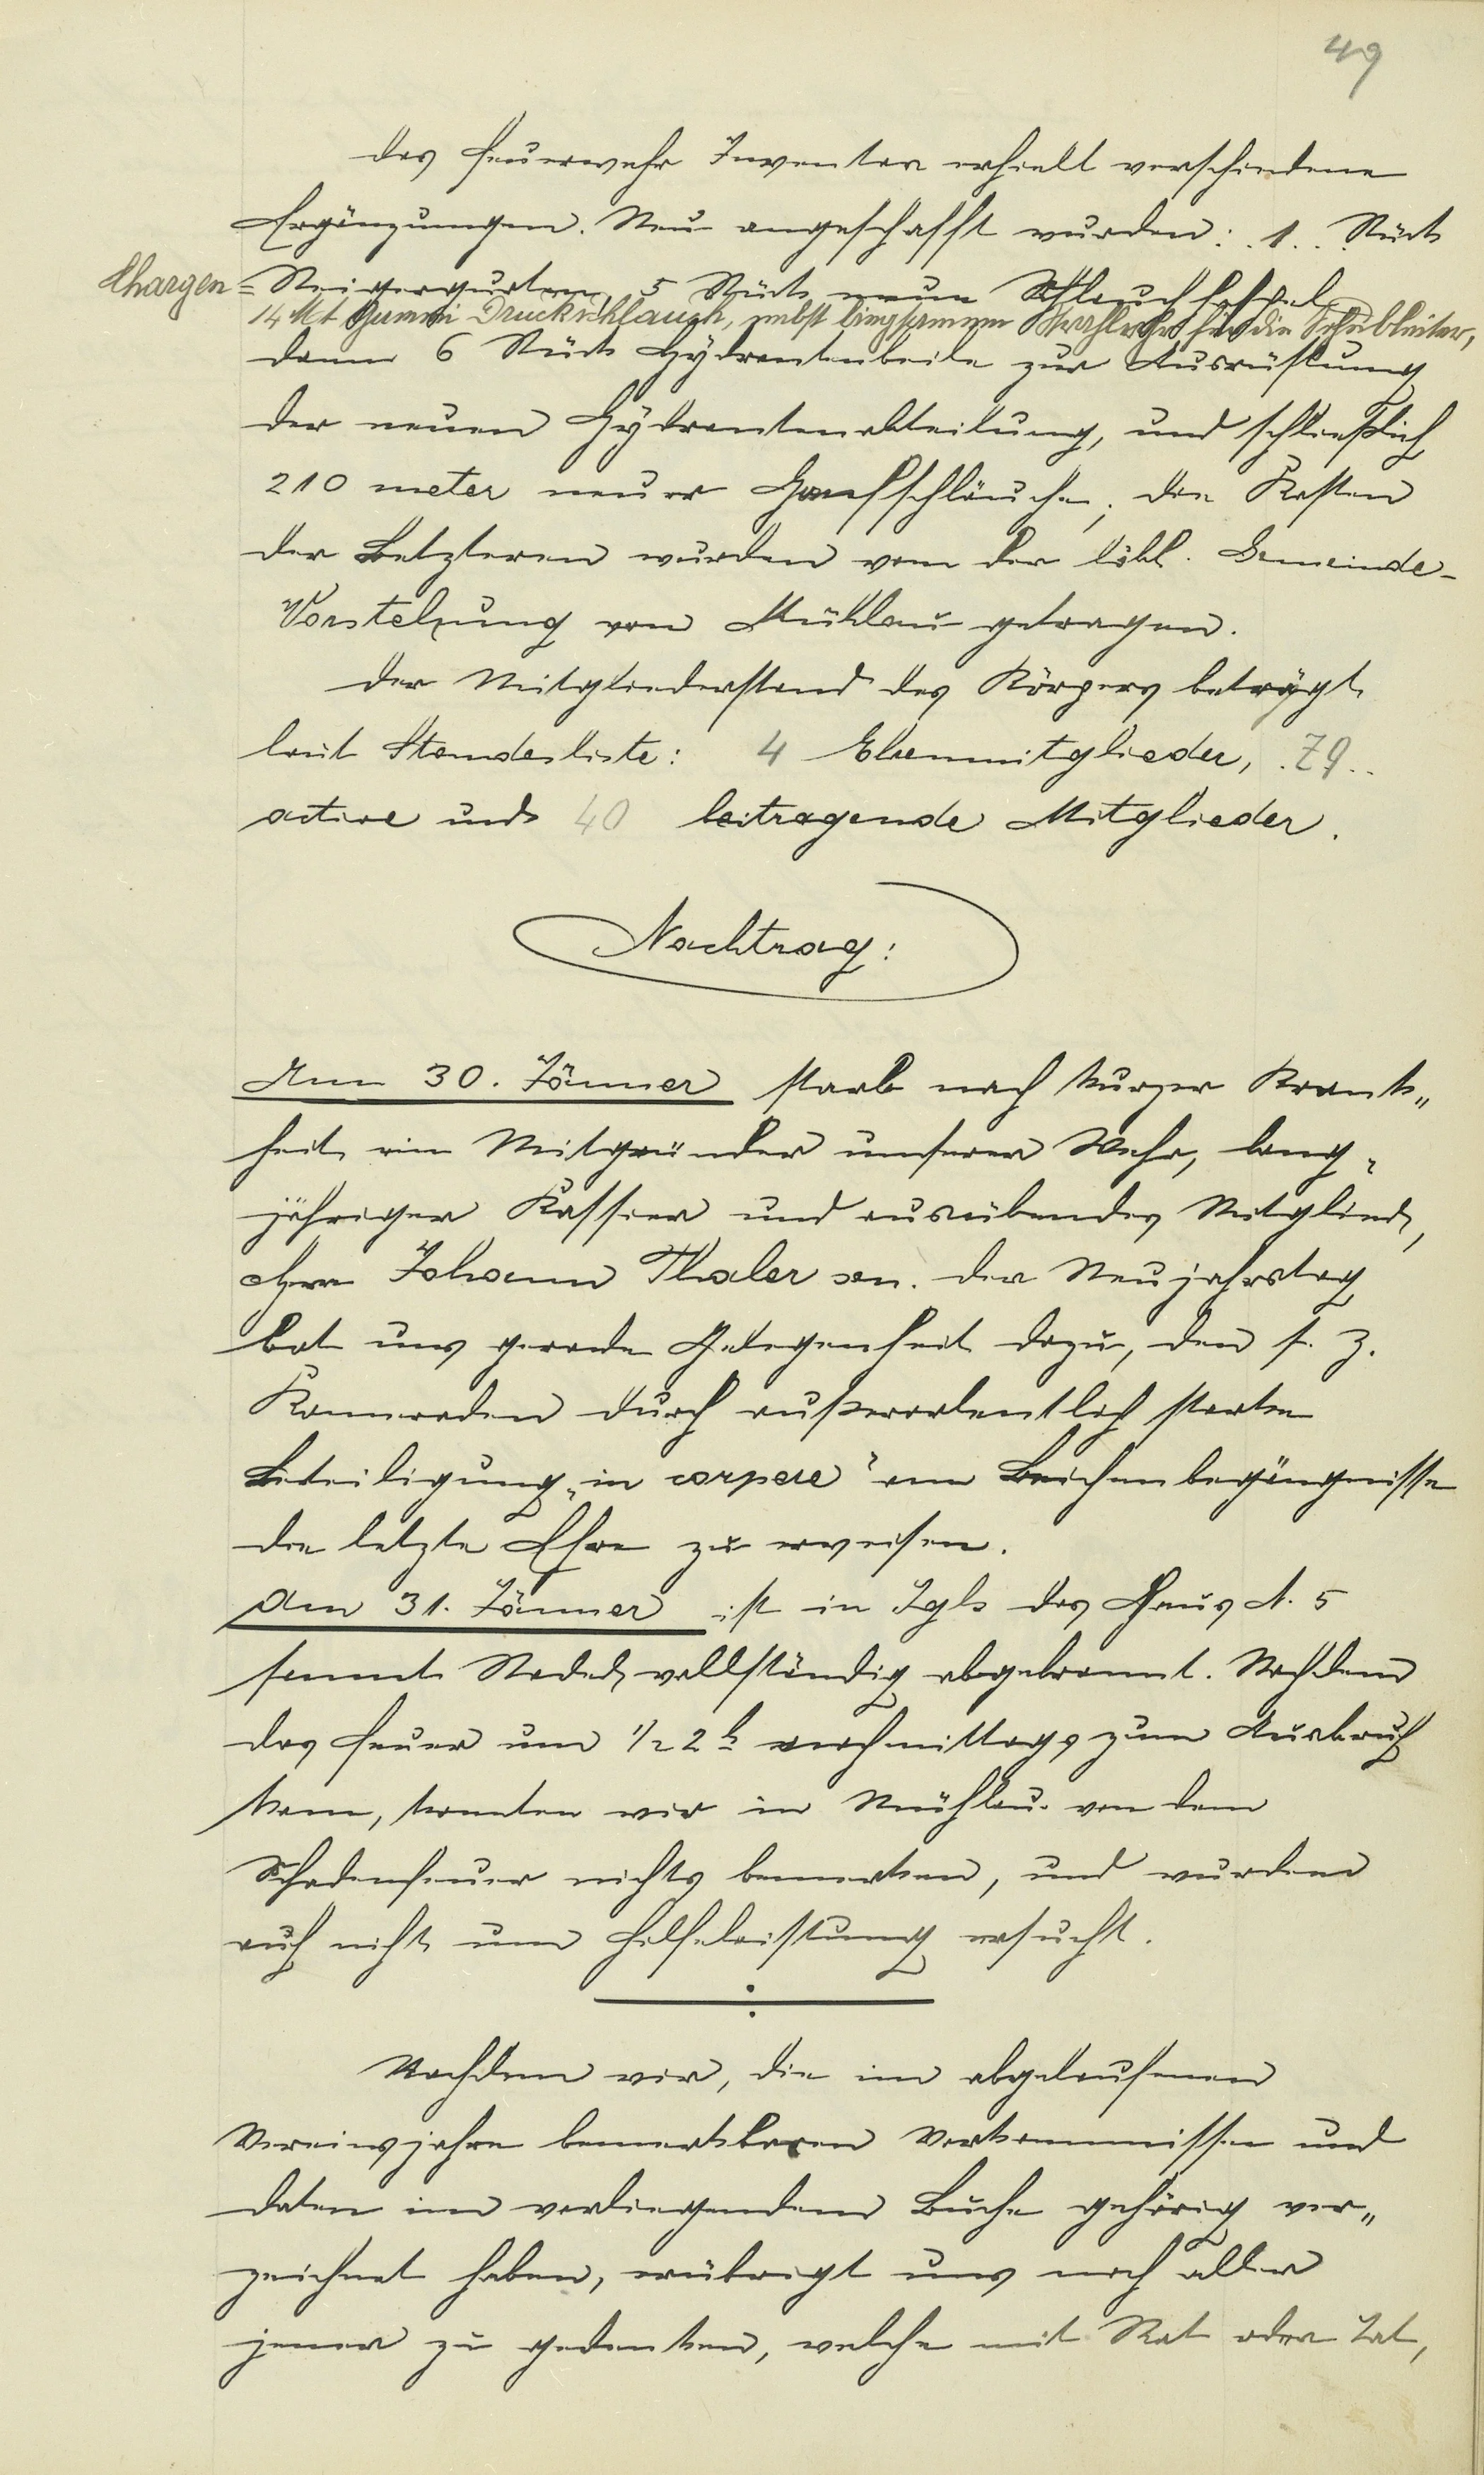 49
Das Feuerwehr Inventar erhielt verschiedene
Ergänzungen. Neu angeschafft wurden: . 1 . . Stück
Chargen = Steigergurten, 5 Stück neue Schlauchhaspel
14 Mt Gummi Druckschlauch, nebst biegsamem Strahlrohr für die Schubleiter,
dann 6 Stück Hydrantenbeile zur Ausrüstung
der neuen Hydrantenabteilung, und schließlich
210 meter neuer Hanfschläuche; die Kosten
der Letzteren wurden von der löbl. Gemeinde-
Vorstehung von Mühlau getragen.
Der Mitgliederstand des Körpers beträgt
laut Standesliste: 4 Ehrenmitglieder, . 79 . .
active und 40 beitragende Mitglieder.
Nachtrag:
Am 30. Jänner starb nach kurzer Krank„
heit ein Mitgründer unserer Wehr, lang„
jähriger Kassier und ausübendes Mitglied,
Herr Johann Thaler sen. Der Neujahrstag
bot uns gerade Gelegenheit dazu, dem s. z.
Kameraden durch außerordentlich starke
Beteiligung „in corpore" am Leichenbegängnisse
die letzte Ehre zu erweisen.
Am 31. Jänner ist in Igls das Haus N. 5
sammt Stadel vollständig abgebrannt. Nachdem
das Feuer um 1/2 2 h nachmittags zum Ausbruch
kam, konnten wir in Mühlau von dem
Schadenfeuer nichts bemerken, und wurden
auch nicht um Hilfeleistung ersucht.
Nachdem wir, die im abgelaufenen
Vereinsjahre bemerkbaren Vorkommnisse und
Daten im vorliegenden Buche gehörig ver„
zeichnet haben, erübrigt uns noch aller
jener zu gedenken, welche mit Rat oder Tat,